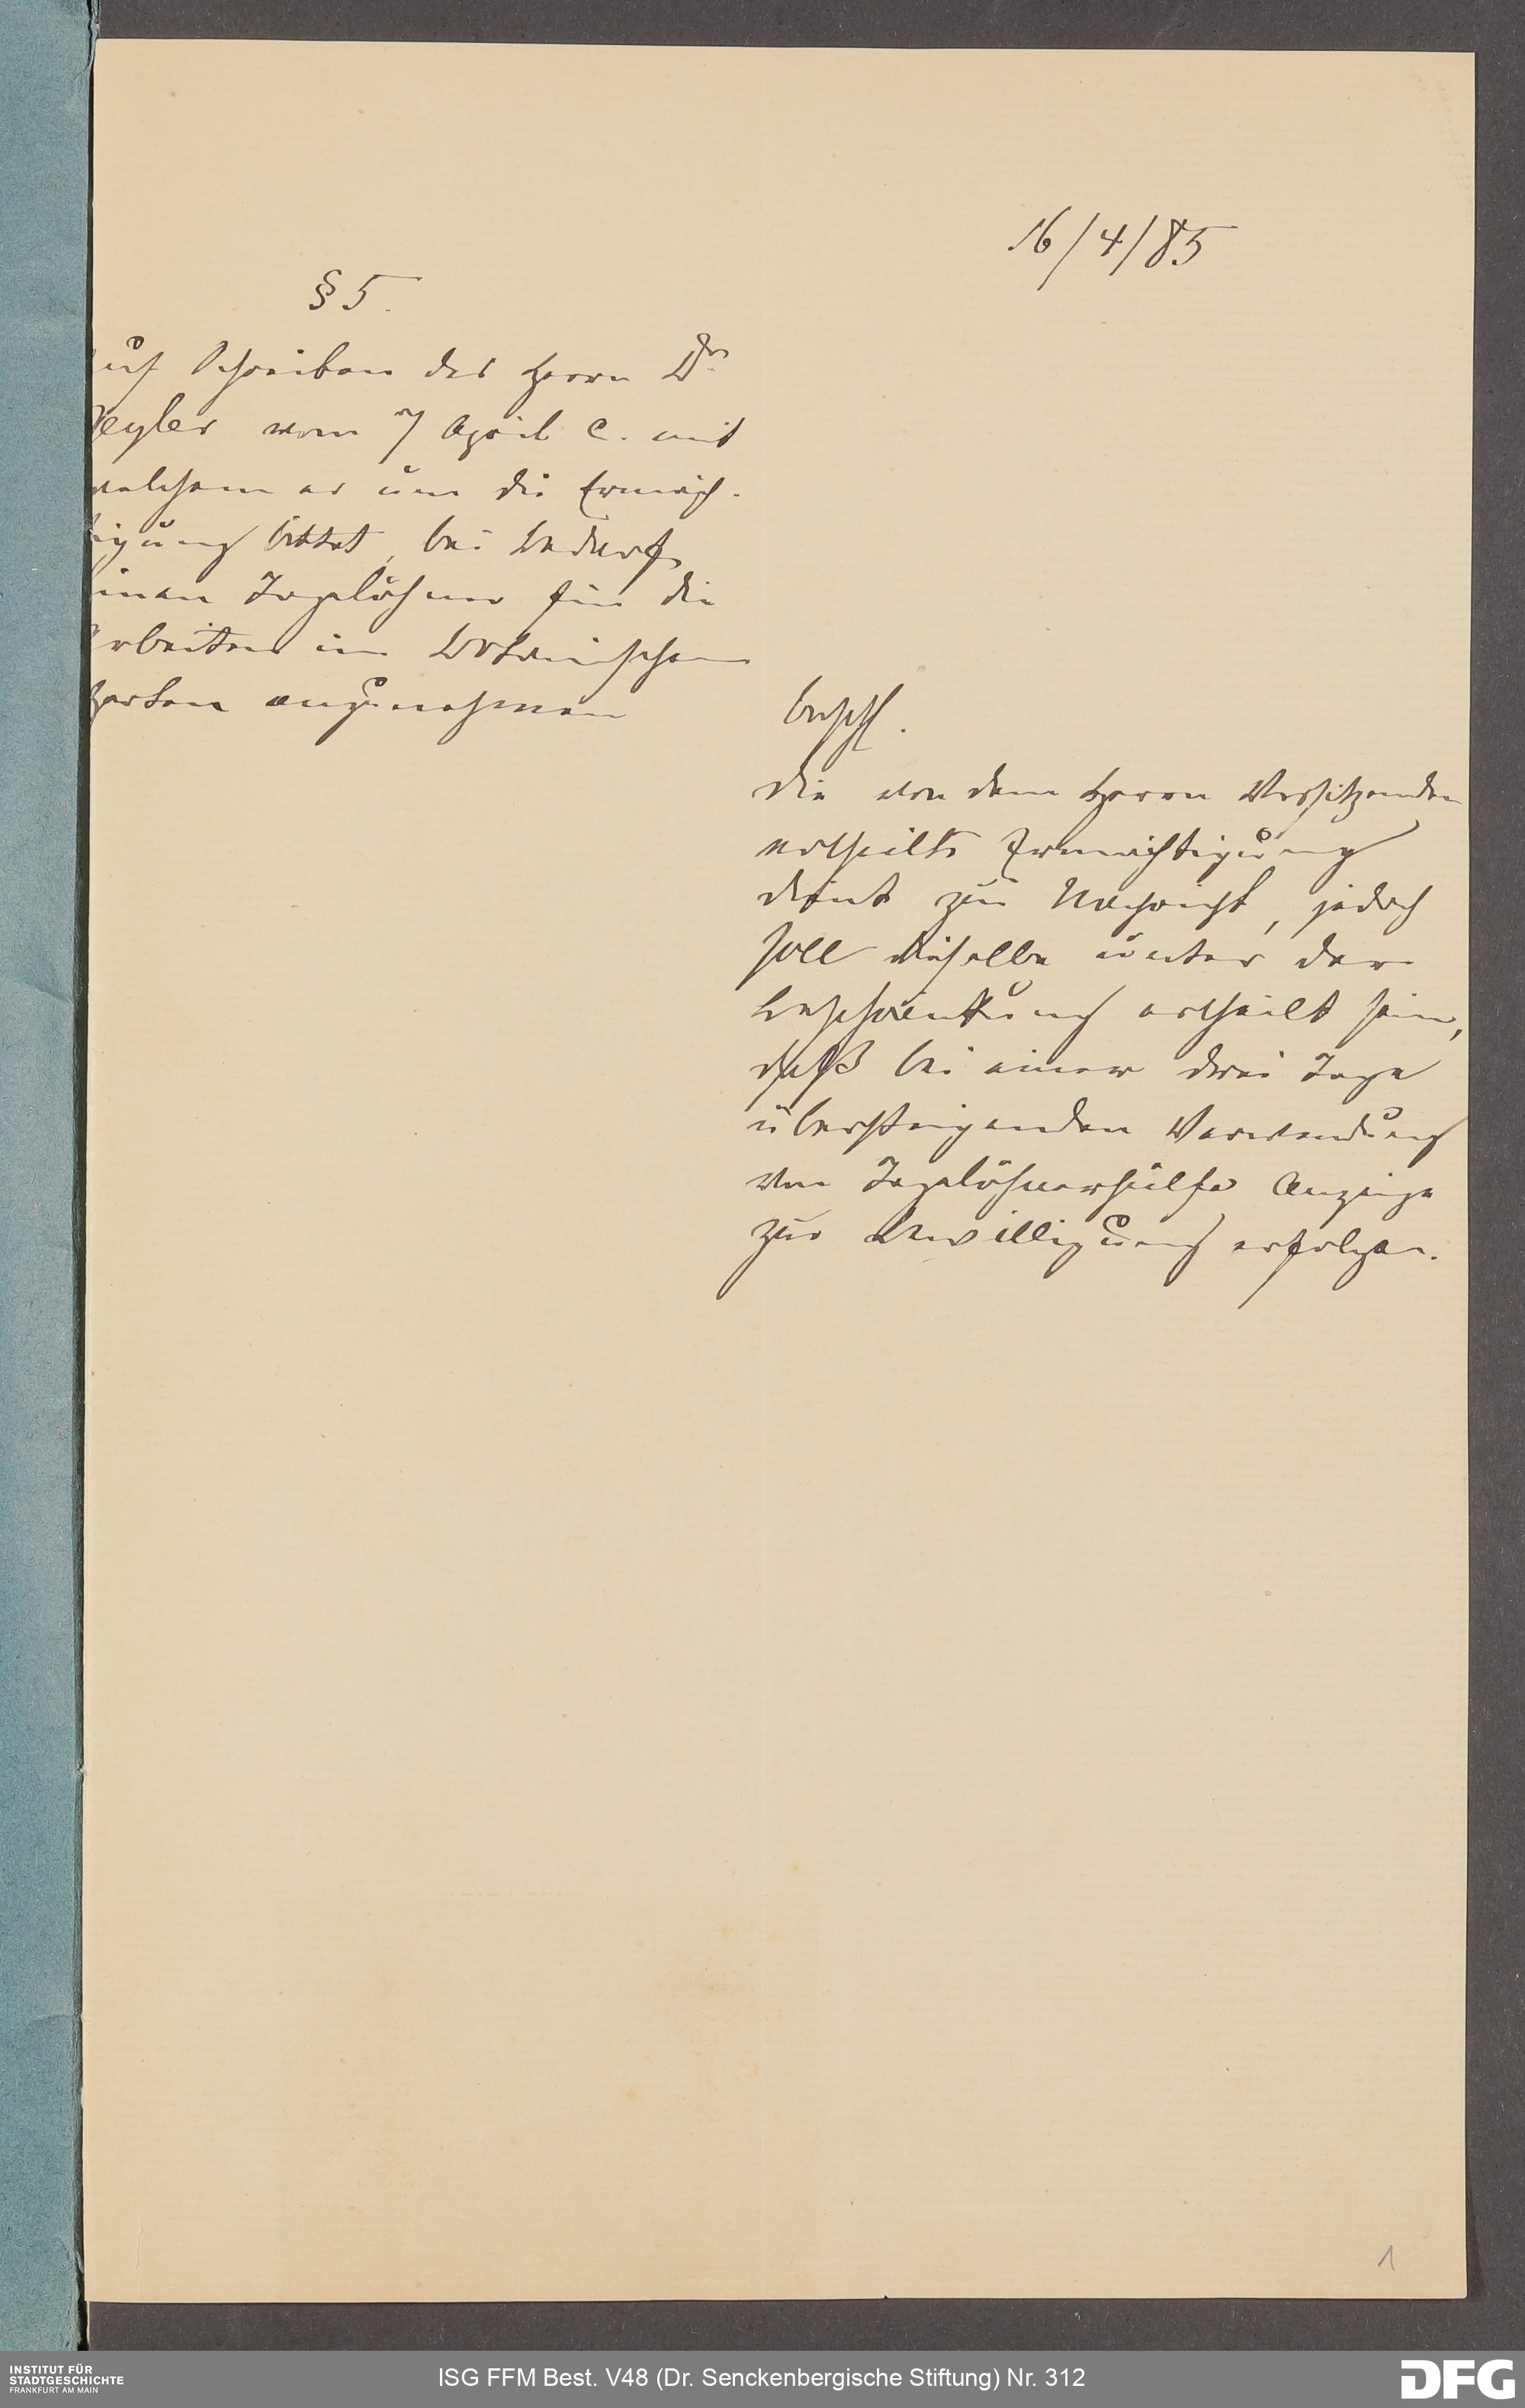 16/4/85
§ 5.
auf Schreiben des Herrn Dr.
Geyler vom 7 April c. mit
welchem er um die Ermäch-
tigung bittet, bei Bedarf
einen Tagelöhner für die
Arbeiten im Botanischen
Garten anzunehmen
Beschl.
die von dem Herrn Vorsitzenden
ertheilte Ermächtigung
dient zur Nachricht, jedoch
soll dieselbe unter der
Beschränkung ertheilt sein,
daß bei einer drei Tage
übersteigenden Verwendung
von Tagelöhnerhülfe Anzeige
zur Bewilligung erfolge.
1
INSTITUT FÜR
STADTGESCHICHTE
FRANKFURT AM MAIN
ISG FFM Best. V48 (Dr. Senckenbergische Stiftung) Nr. 312
DFG